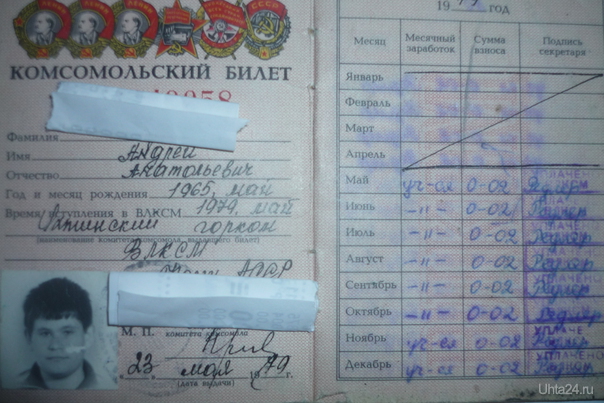 КОМСОМОЛЬСКИЙ БИЛЕТ
Фамилия
Имя Андрей
Отчество Анатольевич
Год и месяц рождения 1965, май
Время вступления в ВЛКСМ 1979, май
Ухтинский горком
(наименование комитета комсомола, выдавшего билет)
ВЛКСМ
Коми АССР
М. П. комитета комсомола
23 мая 1979 г.
(дата выдачи)
19 79 год
Месяц Месячный заработок Сумма взноса Подпись секретаря
Январь
Февраль
Март
Апрель
Май уч-ся 0-02
Июнь -"- 0-02
Июль -"- 0-02
Август -"- 0-02
Сентябрь -"- 0-02
Октябрь -"- 0-02
Ноябрь уч-ся 0-02 УПЛАЧЕНО
Декабрь уч-ся 0-02
Uhta24.ru